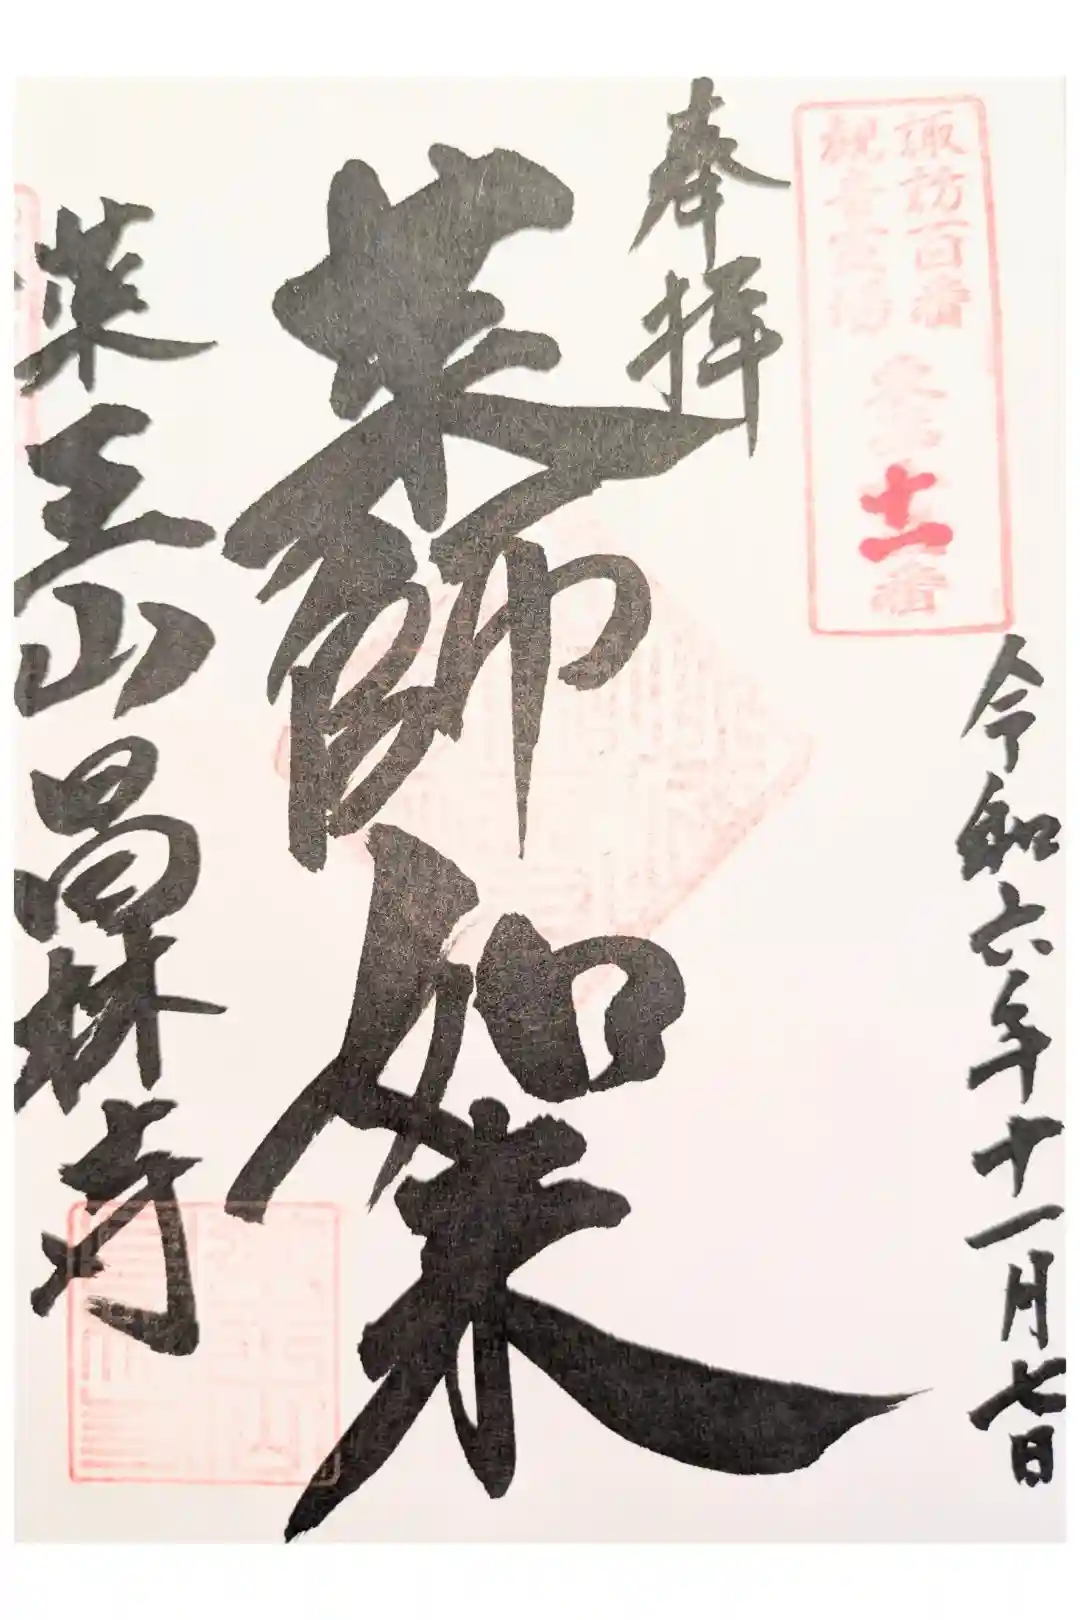 諏訪百番
観音霊場
東十一番
奉拝
令和六年十一月七日
薬師如来
薬王山昌林寺